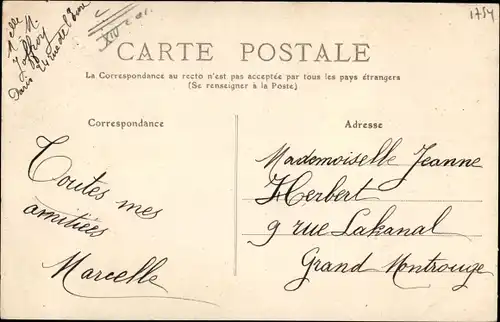 Melle M
Joffroy
Paris 24 rue de l'Eure
XIV e ar.
1754
CARTE POSTALE
La Correspondance au recto n'est pas acceptée par tous les pays étrangers
(Se renseigner à la Poste)
Correspondance
Toutes mes
amitiées
Marcelle
Adresse
Mademoiselle Jeanne
Herbert
9 rue Lakanal
Grand Montrouge